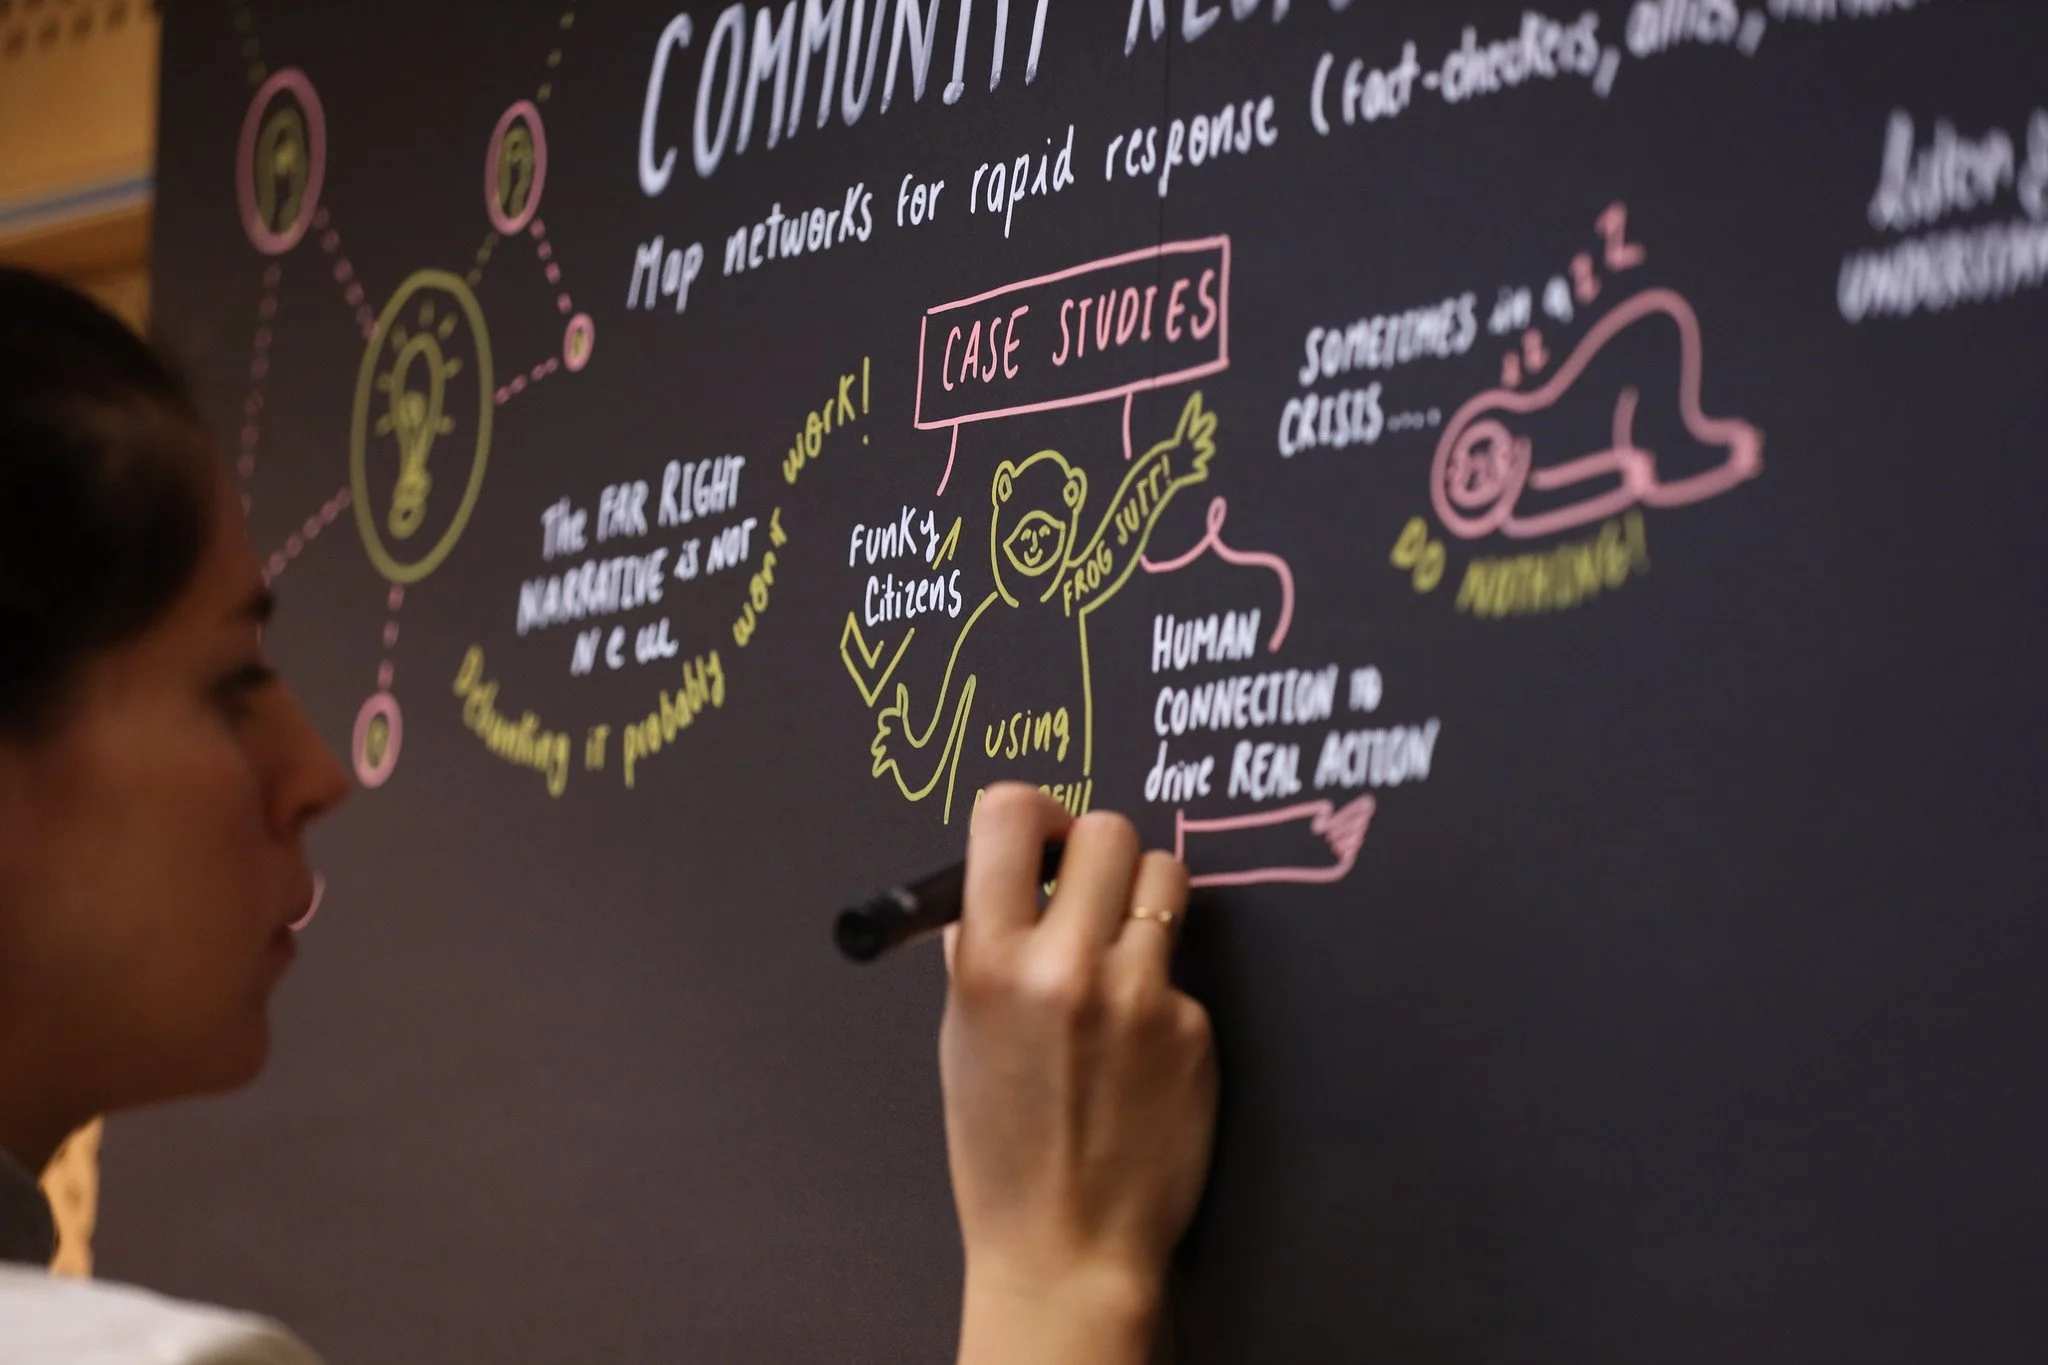 COMMUNITY
Map networks for rapid response (fact-checkers, allies,
CASE STUDIES
The FAR RIGHT
NARRATIVE is NOT
NEW
Debunking it probably won't work!
Funky
Citizens
FROG SUIT!
using
HUMAN
CONNECTION to
drive REAL ACTION
SOMETIMES in a
CRISIS....
z z z z
DO NOTHING!
Listen &